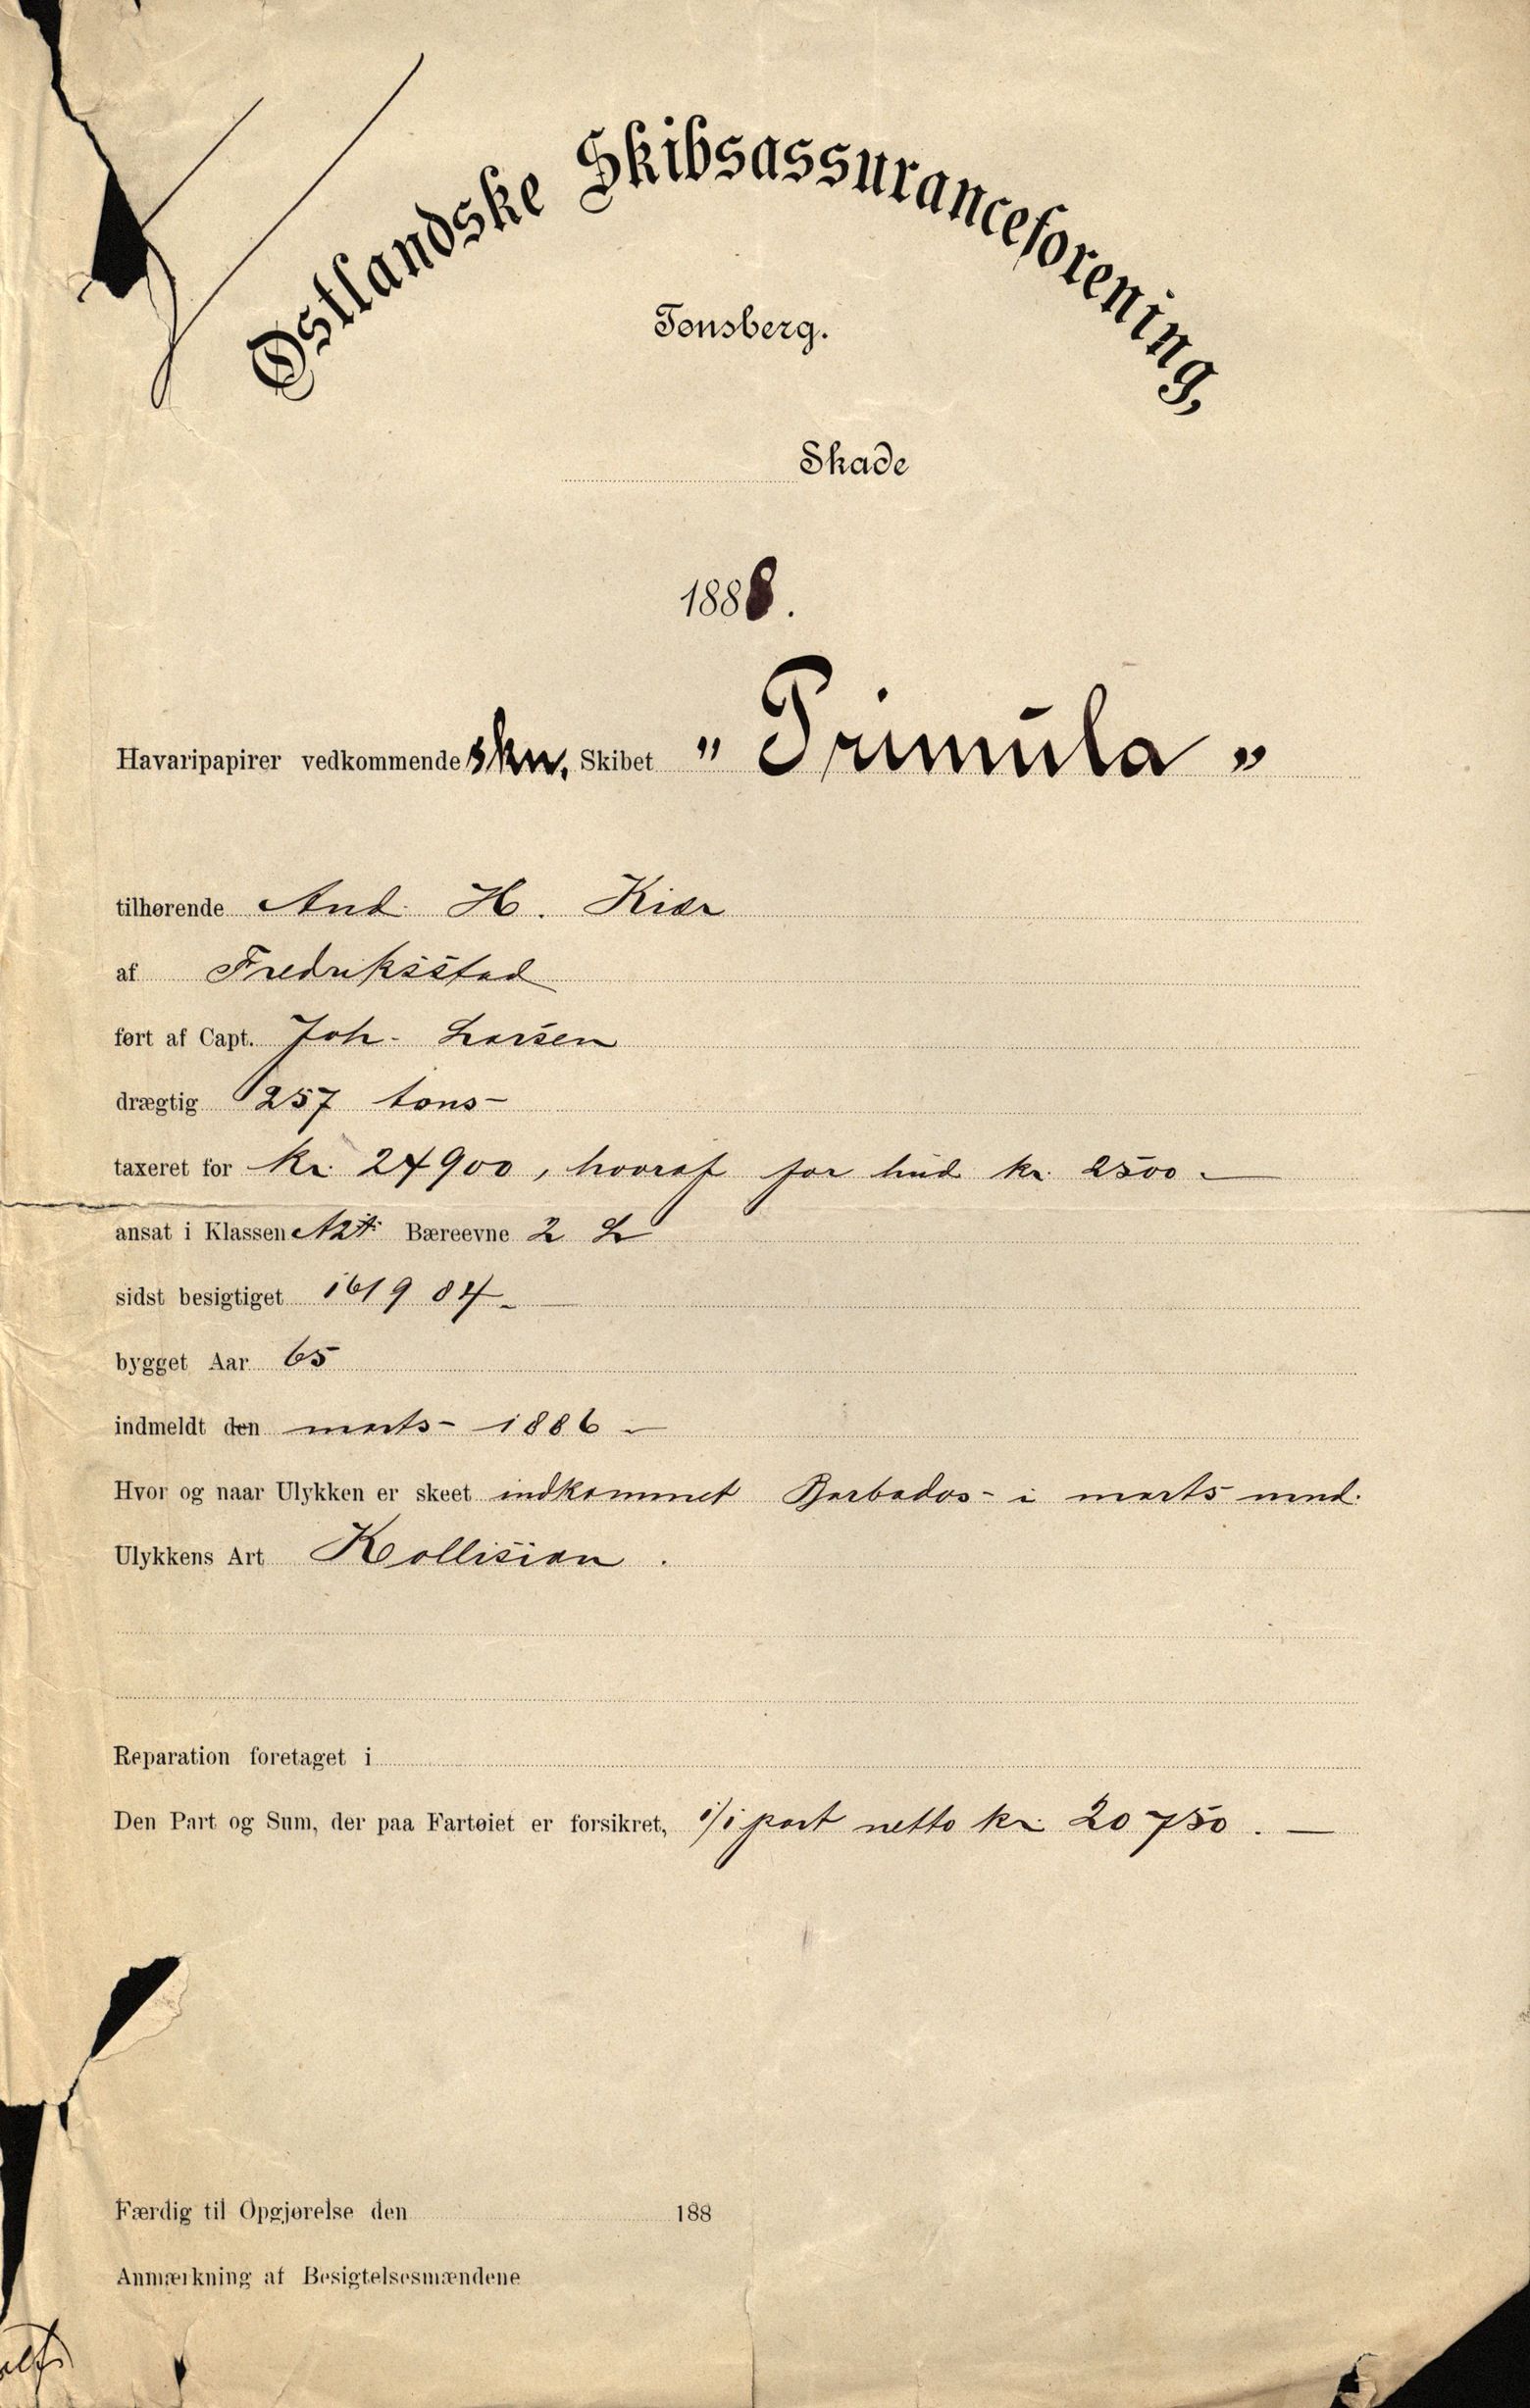 Østlandske Skibsassuranceforening,
Tønsberg.
Skade
1888.
Havaripapirer vedkommende skn. Skibet „ Primula "
tilhørende And. H. Kiær
af Fredriksstad
ført af Capt. Joh. Larsen
drægtig 257 tons
taxeret for kr. 24900, hvoraf for hud kr. 2500 —
ansat i Klassen A2 Bæreevne 2 L
sidst besigtiget 16/9 84 —
bygget Aar 65
indmeldt den marts - 1886 —
Hvor og naar Ulykken er skeet indkommet Barbados - i marts mnd.
Ulykkens Art Kollision .
Reparation foretaget i
Den Part og Sum, der paa Fartøiet er forsikret, 1/1 part netto kr. 20750 . —
Færdig til Opgjørelse den 188
Anmærkning af Besigtelsesmændene